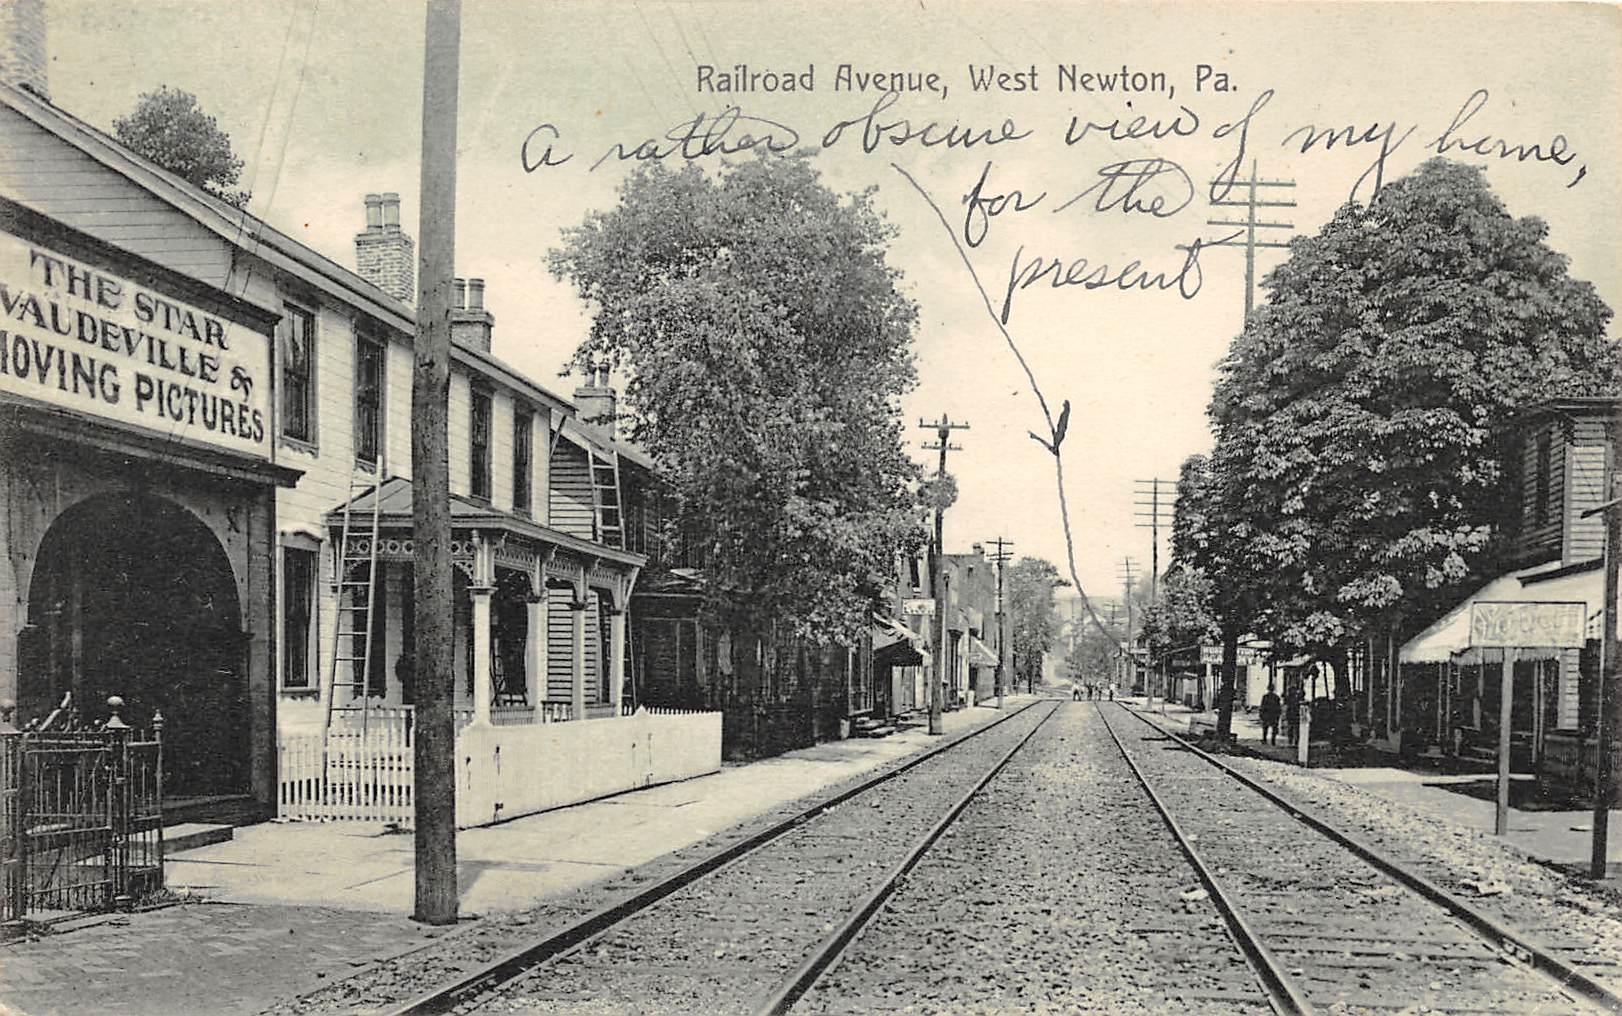 Railroad Avenue, West Newton, Pa.
A rather obscure view of my home,
for the
present
THE STAR
VAUDEVILLE &
MOVING PICTURES